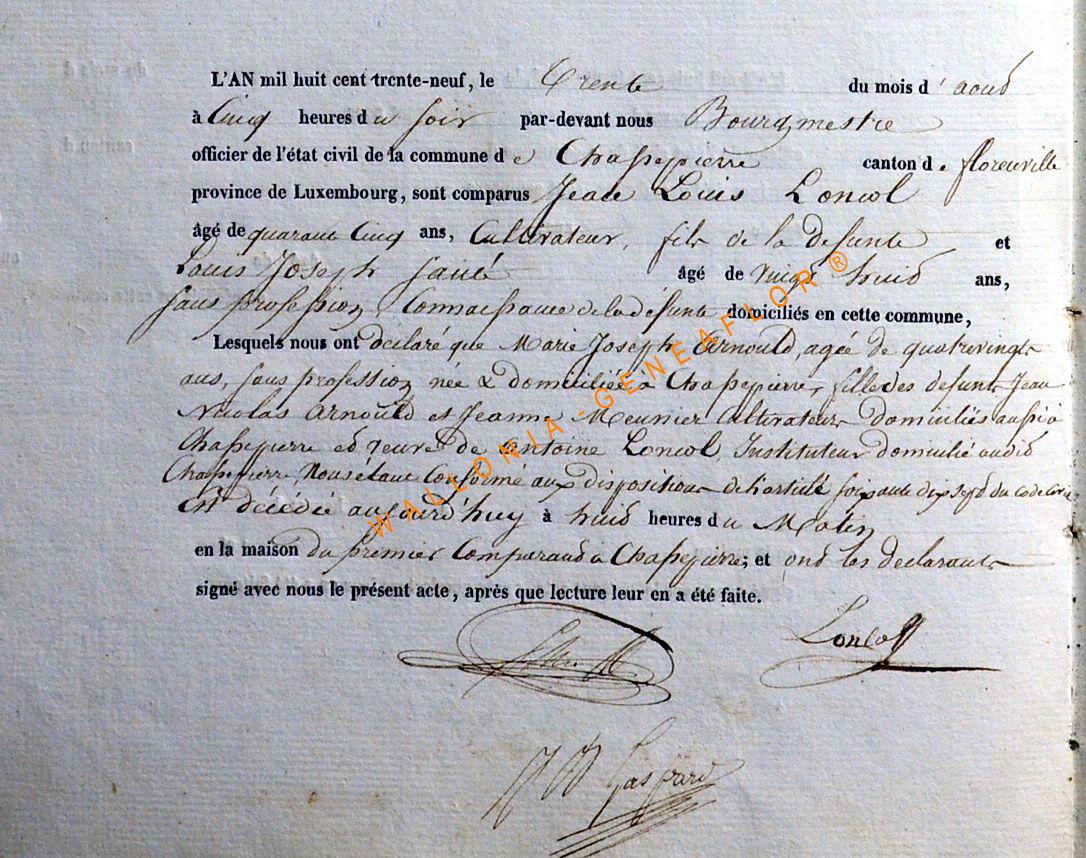 L'AN mil huit cent trente-neuf, le Trente du mois d'aout
à Cinq heures du soir par-devant nous Bourgmestre
officier de l'état civil de la commune de Chassepierre canton de florenville
province de Luxembourg, sont comparus Jean Louis Loncol
âgé de quarant Cinq ans, Cultivateur, fils de la defunte et
Louis Joseph âgé de vingt huit ans,
sans profession Connaissance de la defunte domiciliés en cette commune,
Lesquels nous ont déclaré que Marie Joseph Arnould, agée de quatrevingt
ans, sans profession née & domiciliée à Chassepierre, fille des defunts Jean
Nicolas Arnould et Jeanne Meunier Cultivateurs domiciliés aussi à
Chassepierre et veuve de Antoine Loncol, Instituteur domicilié audit
Chassepierre, Nous étant Conformé aux dispositions de l'article soixante dix sept du code Civil
est décédée aujourd'huy à huit heures du Matin
en la maison du premier Comparant à Chassepierre; et ont les declarants
signé avec nous le présent acte, après que lecture leur en a été faite.
Loncol
Gaspard
WALLONIA - GENEAFLOR ®